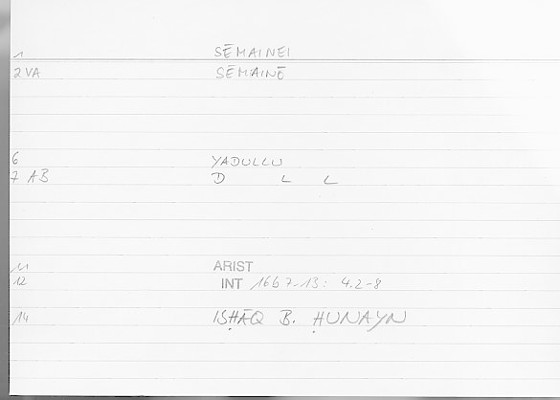 1 SĒMAINEI
2 VA SĒMAINŌ
6 YADULLU
7 AB D L L
11 ARIST
12 INT 16b7-13: 4.2-8
14 ISḤĀQ B. ḤUNAYN